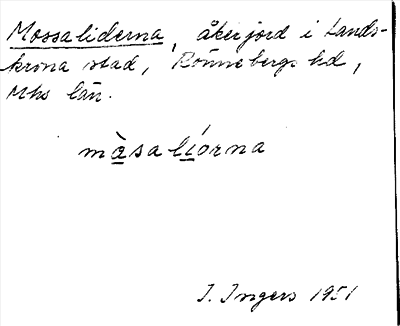 Mossaliderna, åkerjord i Lands-
krona stad, Rönnebergs hd,
Mhs län.
màsalíorna
I. Ingers 1951